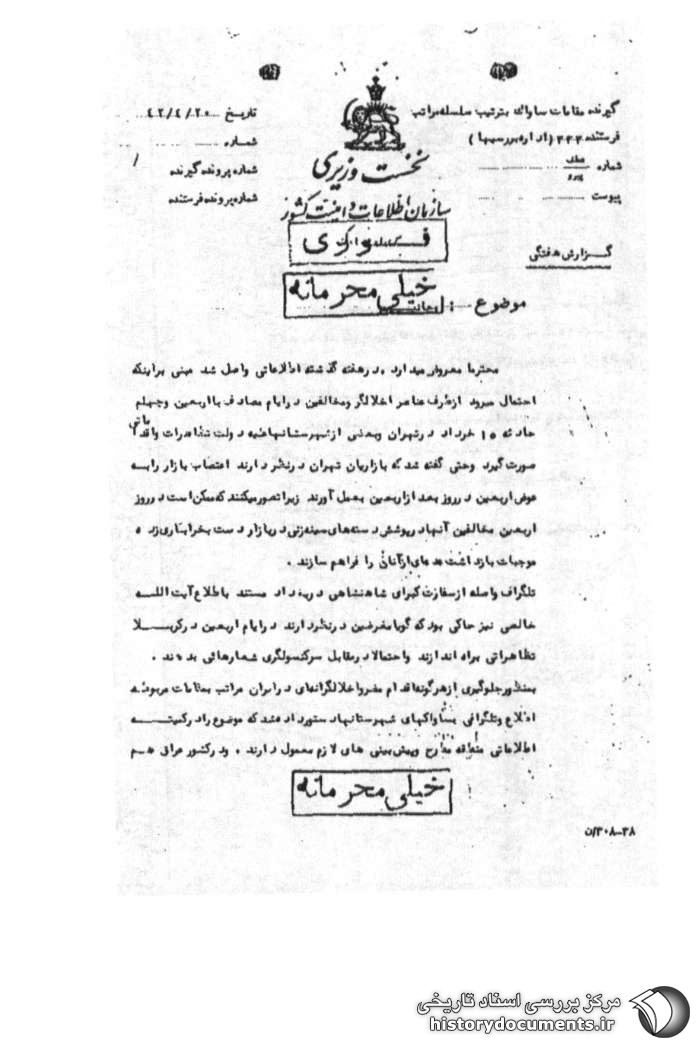 گیرنده مقامات ساواک بترتیب سلسله مراتب
فرستنده ۳۳۳ (اداره بررسیها)
شماره عطف پیرو
پیوست
تاریخ ۴۲/۴/۲۰
شماره
شماره پرونده گیرنده
شماره پرونده فرستنده
نخست وزیری
سازمان اطلاعات و امنیت کشور
گزارش هفتگی
خیلی محرمانه
موضوع :
محترما معروض میدارد . در هفته گذشته اطلاعاتی واصل شد مبنی بر اینکه
احتمال میرود از طرف عناصر اخلالگر و مخالفین در ایام مصادف با اربعین و چهلم
حادثه ۱۵ خرداد در تهران و بعضی از شهرستانها علیه دولت تظاهرات و اقداماتی
صورت گیرد وحتی گفته شد که بازاریان تهران در نظر دارند اعتصاب بازار را به
عوض اربعین در روز بعد از اربعین بعمل آورند زیرا تصور میکنند که ممکن است در روز
اربعین مخالفین آنها در پوشش دسته های سینه زنی در بازار دست بخرابکاری زده
موجبات بازداشت عده ای از آنان را فراهم سازند .
تلگراف واصله از سفارت کبرای شاهنشاهی در بغداد مستند باطلاع آیت اللـه
خالصی نیز حاکی بود که گویا مغرضین در نظر دارند در ایام اربعین در کربـــلا
تظاهراتی براه اندازند و احتمالا در مقابل سرکنسولگری شعارهائی بدهند .
بمنظور جلوگیری از هرگونه اقدام مضر و اخلالگرانه ای در ایران مراتب بمقامات مربوطه
اطلاع و تلگرافی بساواکهای شهرستانها دستور داده شد که موضوع را در کمیتـــه
اطلاعاتی منطقه مطرح و پیش بینی های لازم معمول دارند . و در کشور عراق هـم
خیلی محرمانه
۳۸-۳۰۸/ن
مرکز بررسی اسناد تاریخی
historydocuments.ir